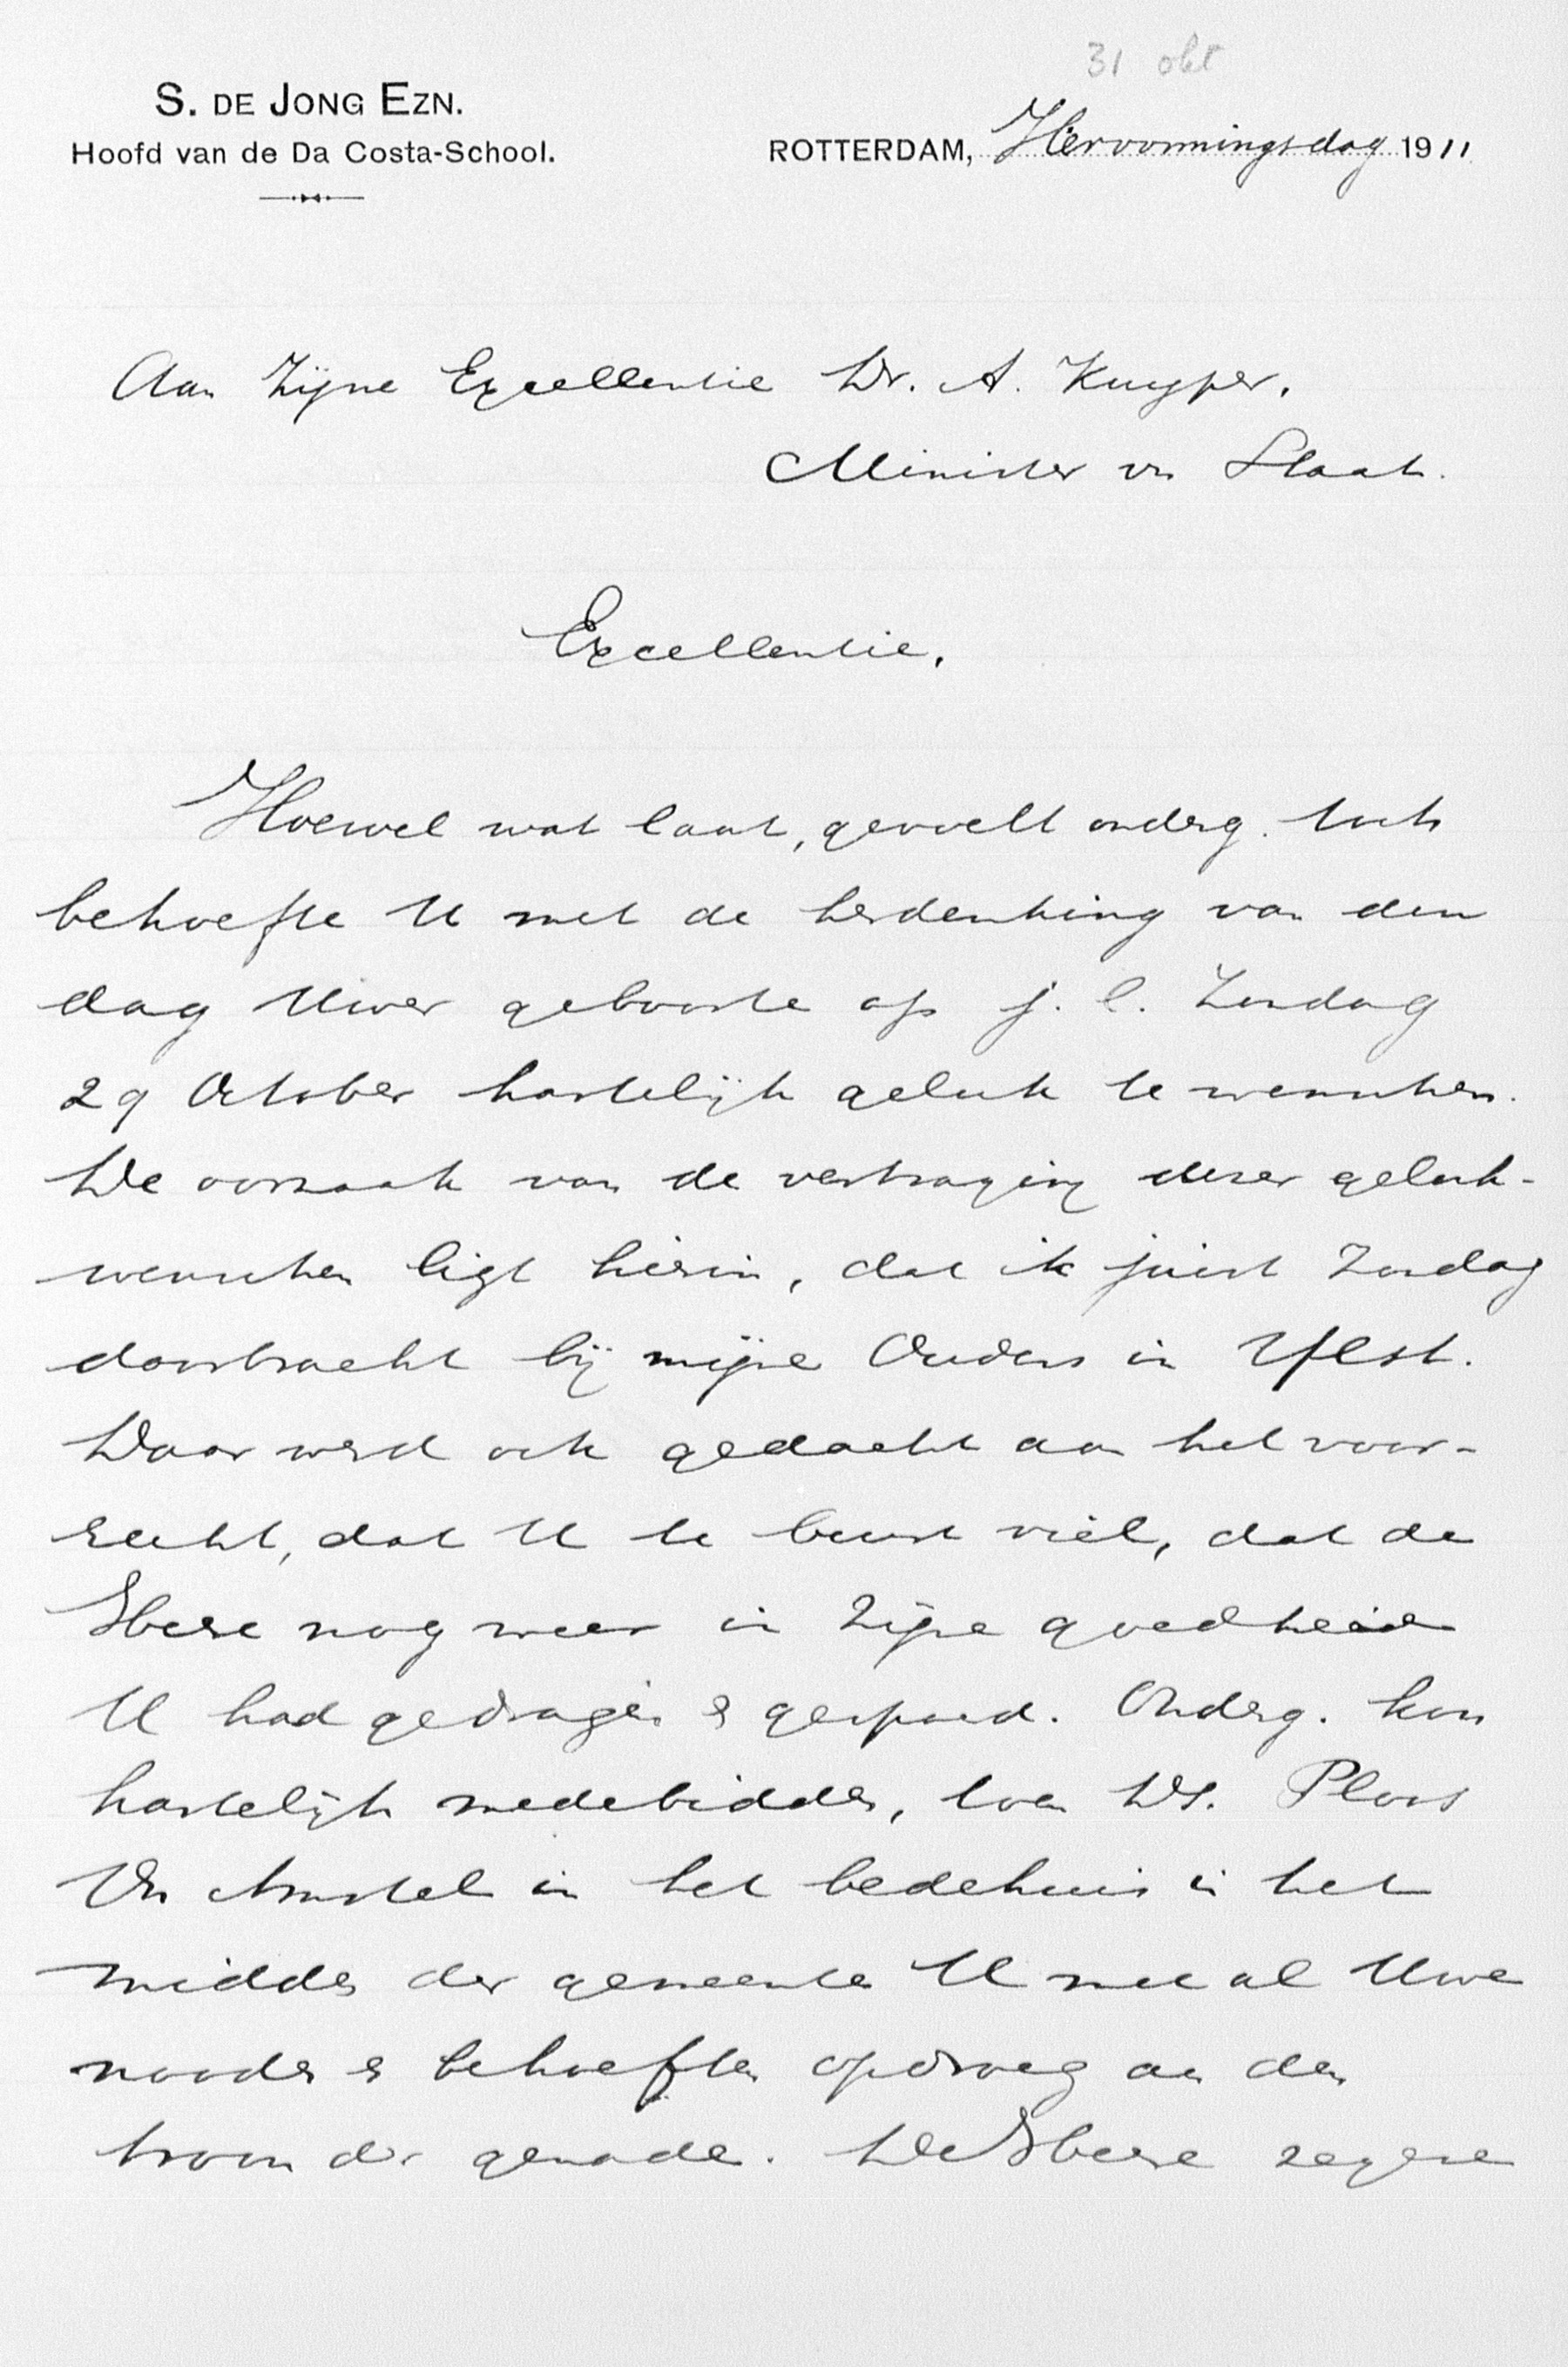 31 okt
S. DE JONG EZN.
Hoofd van de Da Costa-School.
ROTTERDAM, Hervormingsdag 1911
Aan Zijne Excellentie Dr. A. Kuyper,
Minister vn Staat.
Excellentie,
Hoewel wat laat, gevoelt onderg. toch
behoefte U met de herdenking van den
dag Uwer geboorte op j.l. Zondag
29 October hartelijk geluk te wenschen.
De oorzaak van de vertraging dezer geluk-
wenschen ligt hierin, dat ik juist Zondag
doorbracht bij mijne Ouders in Ylst.
Daar werd ook gedacht aan het voor-
recht, dat U te beurt viel, dat de
Heere nog weer in Zijne goedheid
U had gedragen & gespaard. Onderg. kon
hartelijk medebidden, toen Ds. Ploos
Vn Amstel in het bedehuis in het
midden der gemeente U met al Uwe
nooden & behoeften opdroeg aan den
troon der genade. De Heere zegene